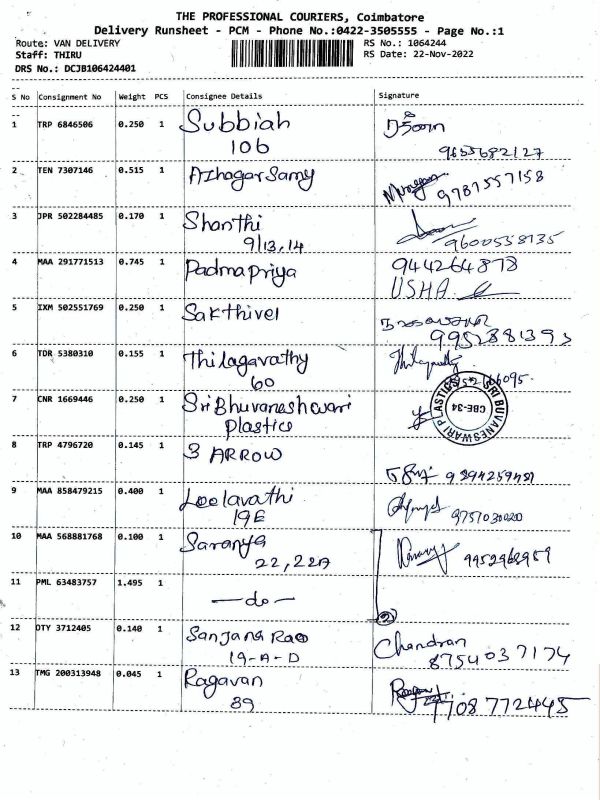 THE PROFESSIONAL COURIERS, Coimbatore
Delivery Runsheet - PCM - Phone No.:0422-3505555 - Page No.:1
Route: VAN DELIVERY RS No.: 1064244
Staff: THIRU RS Date: 22-Nov-2022
DRS No.: DCJB106424401
S No Consignment No Weight PCS Consignee Details Signature
1 TRP 6846506 0.250 1 Subbiah
106 9655682127
2 TEN 7307146 0.515 1 Azhagar Samy
Murugan 9787557158
3 JPR 502284485 0.170 1 Shanthi
9/13,14 9600558135
4 MAA 291771513 0.745 1 Padmapriya 944264878
USHA
5 IXM 502551769 0.250 1 Sakthivel
6 TDR 5380310 0.155 1 Thilagavathy
60
7 CNR 1669446 0.250 1 Sri Bhuvaneshwari
Plastics
SRI BUVANESWARI PLASTICS
CBE-34
8 TRP 4796720 0.145 1 3 ARROW
9 MAA 858479215 0.400 1 Leelavathi
19E 9751030020
10 MAA 568881768 0.100 1 Saranya
22,22A 9952968959
11 PML 63483757 1.495 1
—do— 2
12 DTY 3712405 0.140 1 Sanjana Rao Chandran
19-A-D 8754037174
13 TMG 200313948 0.045 1 Ragavan
89 7708772445